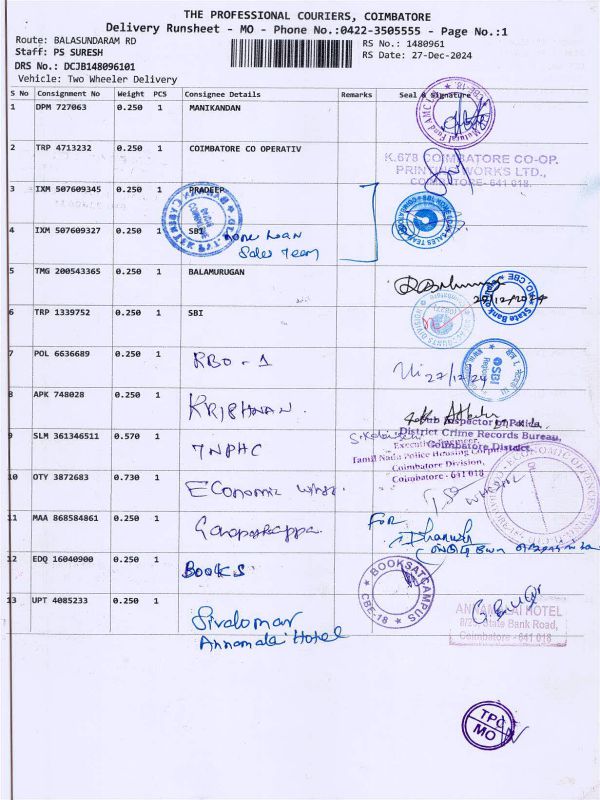 THE PROFESSIONAL COURIERS, COIMBATORE
Delivery Runsheet - MO - Phone No.:0422-3505555 - Page No.:1
Route: BALASUNDARAM RD
RS No.: 1480961
Staff: PS SURESH
RS Date: 27-Dec-2024
DRS No.: DCJB148096101
Vehicle: Two Wheeler Delivery
S No Consignment No Weight PCS Consignee Details Remarks Seal & Signature
1 DPM 727063 0.250 1 MANIKANDAN
2 TRP 4713232 0.250 1 COIMBATORE CO OPERATIV
K.678 COIMBATORE CO-OP.
PRINTING WORKS LTD.,
COIMBATORE- 641 018.
3 IXM 507609345 0.250 1 PRADEEP
4 IXM 507609327 0.250 1 SBI
Home Loan
Sales Team
5 TMG 200543365 0.250 1 BALAMURUGAN
27/12/2024
State Bank
6 TRP 1339752 0.250 1 SBI
7 POL 6636689 0.250 1 RBO - 1
27/12/24
SBI
8 APK 748028 0.250 1 KRISHNAN
Sub Inspector of Police
District Crime Records Bureau,
Coimbatore District.
9 SLM 361346511 0.570 1 TNPHC
Tamil Nadu Police Housing Corporation
Coimbatore Division,
Coimbatore - 641 018
10 OTY 3872683 0.730 1 Economic wing.
11 MAA 868584861 0.250 1
FOR
12 EDQ 16040900 0.250 1 BOOKS
BOOKSATCAMPUS
CBE-18
13 UPT 4085233 0.250 1
Annamalai Hotel
ANNAMALAI HOTEL
State Bank Road,
Coimbatore - 641 018
TPC
MO